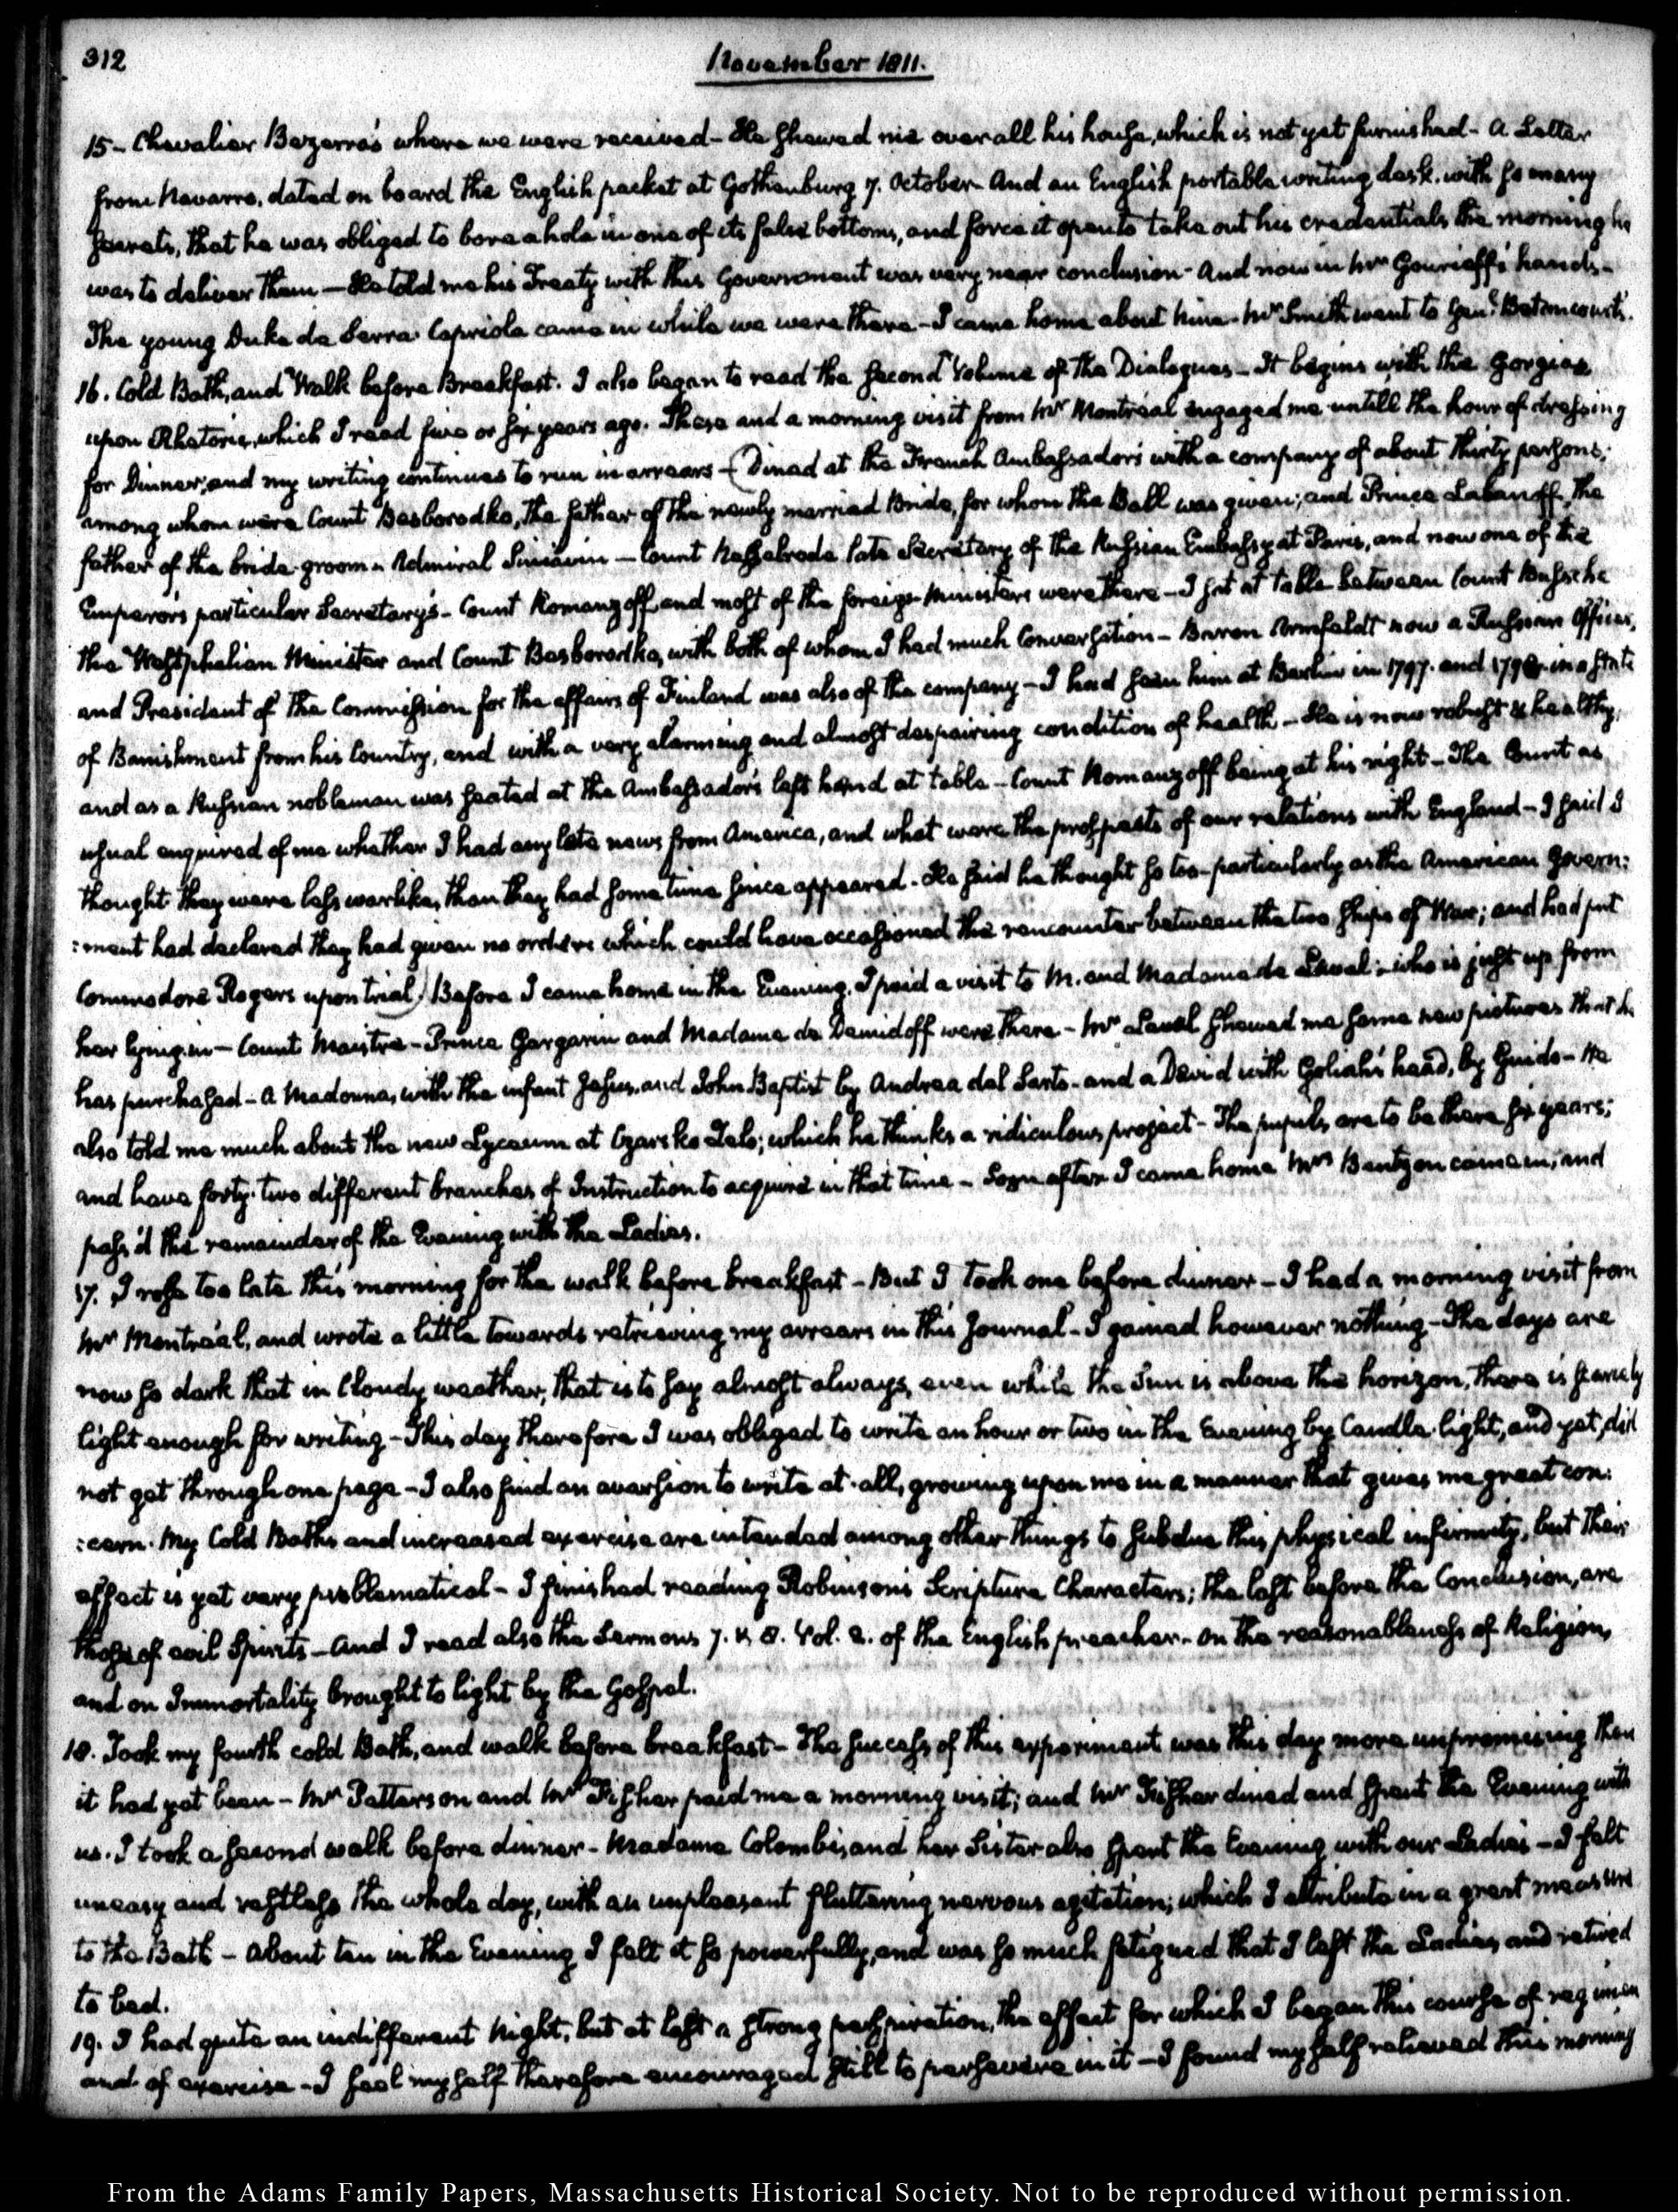 312
November 1811.
15 - Chevalier Bezerra's where we were received - He shewed me over all his house, which is not yet furnished - A Letter
from Navarro, dated on board the English packet at Gothenburg 7. October - And an English portable writing desk, with so many
secrets, that he was obliged to bore a hole in one of its false bottoms, and force it open to take out his credentials the morning he
was to deliver them — He told me his Treaty with this Government was very near conclusion - And now in Mr Gourieff's hands -
The young Duke de Serra Capriola came in while we were there - I came home about nine - Mr Smith went to Genl. Betancourt's.
16. Cold Bath, and Walk before Breakfast. I also began to read the second Volume of the Dialogues - It begins with the Gorgias
upon Rhetoric, which I read five or six years ago. These and a morning visit from Mr Montréal engaged me untill the hour of dressing
for Dinner; and my writing continues to run in arrears - (Dined at the French Ambassador's with a company of about thirty persons;
among whom were Count Besborodko, the father of the newly married Bride, for whom the Ball was given; and Prince Labanoff, the
father of the bride-groom - Admiral Siniavin — Count Nesselrode late Secretary of the Russian Embassy at Paris, and now one of the
Emperor's particular Secretary's - Count Romanzoff and most of the foreign Ministers were there - I sat at table between Count Bussche
the Westphalian Minister and Count Besborodko, with both of whom I had much Conversation - Baron Armfeldt now a Russian Officer,
and President of the Commission for the affairs of Finland was also of the company - I had seen him at Berlin in 1797. and 1798. in a state
of Banishment from his Country, and with a very alarming and almost despairing condition of health - He is now robust & healthy,
and as a Russian nobleman was seated at the Ambassador's left hand at table - Count Romanzoff being at his right - The Count as
usual enquired of me whether I had any late news from America, and what were the prospects of our relations with England - I said I
thought they were less warlike, than they had some time since appeared - He said he thought so too - particularly as the American Govern:
:ment had declared they had given no orders which could have occasioned the rencounter between the two ships of War; and had put
Commodore Rogers upon trial) Before I came home in the Evening, I paid a visit to M. and Madame de Laval - who is just up from
her lying-in - Count Maistre - Prince Gargarin and Madame de Demidoff were there - Mr Laval shewed me some new pictures that he
has purchased - A Madonna, with the infant Jesus, and John Baptist by Andrea del Sarto - and a David with Goliah's head, by Guido - He
also told me much about the new Lyceum at Czarsko Zelo; which he thinks a ridiculous project - The pupils are to be there six years;
and have forty-two different branches of Instruction to acquire in that time - Soon after I came home Mrs Bentzon came in, and
pass'd the remainder of the Evening with the Ladies.
17. I rose too late this morning for the walk before breakfast - But I took one before dinner - I had a morning visit from
Mr Montréal, and wrote a little towards retrieving my arrears in this Journal - I gained however nothing - The days are
now so dark that in Cloudy weather, that is to say almost always, even while the Sun is above the horizon, there is scarcely
light enough for writing - This day therefore I was obliged to write an hour or two in the Evening by Candle-light, and yet, did
not get through one page - I also find an aversion to write at all, growing upon me in a manner that gives me great con:
:cern. My Cold Baths and increased exercise are intended among other things to subdue this physical infirmity, but their
effect is yet very problematical - I finished reading Robinson's Scripture Characters; the last before the Conclusion, are
those of evil Spirits - And I read also the Sermons 7. & 8. Vol. 2. of the English preacher - On the reasonableness of Religion,
and on Immortality brought to light by the Gospel.
18. Took my fourth cold Bath, and walk before breakfast - The success of this experiment was this day more unpromising than
it had yet been - Mr Patterson and Mr Fisher paid me a morning visit; and Mr Fisher dined and spent the Evening with
us. I took a second walk before dinner - Madame Colombi, and her Sister also spent the Evening with our Ladies - I felt
uneasy and restless the whole day, with an unpleasant fluttering nervous agitation; which I attribute in a great measure
to the Bath - about ten in the Evening I felt it so powerfully, and was so much fatigued that I left the Ladies, and retired
to bed.
19. I had quite an indifferent Night, but at last a strong perspiration, the effect for which I began this course of regimen
and of exercise - I feel myself therefore encouraged still to persevere in it - I found myself relieved this morning
From the Adams Family Papers, Massachusetts Historical Society. Not to be reproduced without permission.